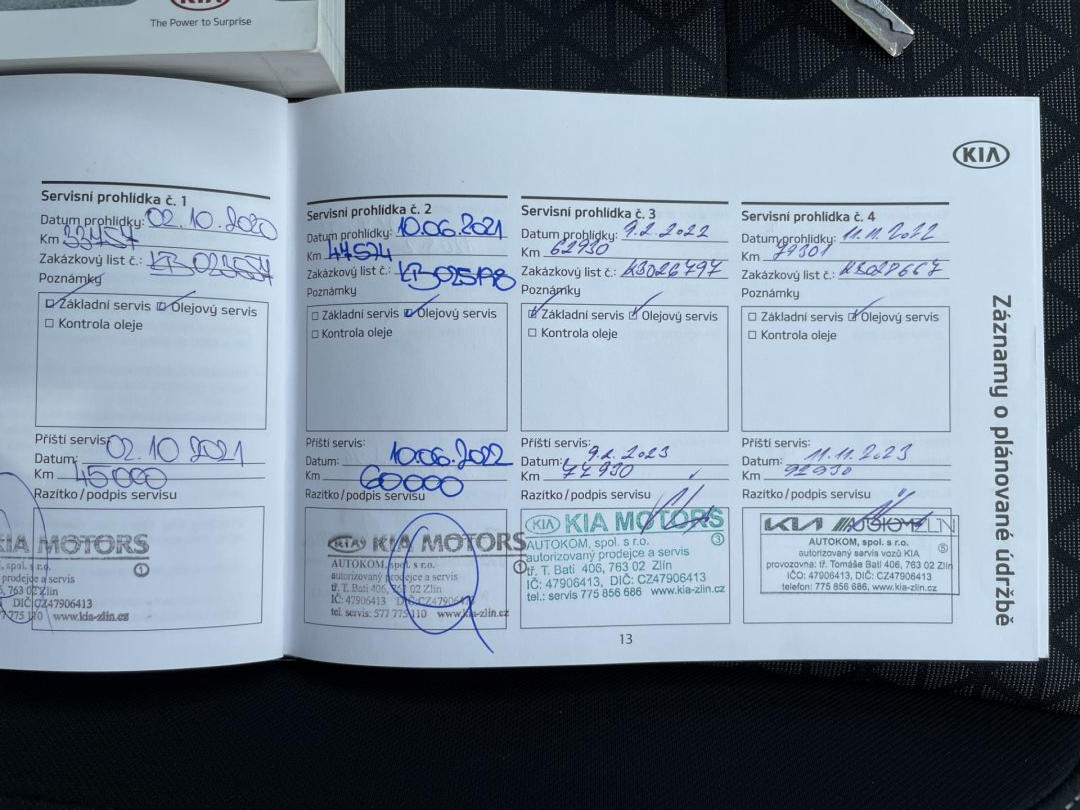 KIA
The Power to Surprise
KIA
Záznamy o plánované údržbě
Servisní prohlídka č. 1
Datum prohlídky: 02.10.2020
Km 33757
Zakázkový list č.:
Poznámky
Základní servis Olejový servis
Kontrola oleje
Příští servis:
Datum: 02.10 2021
Km 45000
Razítko/podpis servisu
KIA MOTORS
, spol. s r.o.
prodejce a servis
6, 763 02 Zlín
DIČ:CZ47906413
775 110 www.kia-zlin.cz
Servisní prohlídka č. 2
Datum prohlídky: 10.06.2021
Km 47574
Zakázkový list č.:
Poznámky
Základní servis Olejový servis
Kontrola oleje
Příští servis:
Datum: 10.06.2022
Km 60000
Razítko/podpis servisu
KIA KIA MOTORS
AUTOKOM, spol. s r.o.
autorizovaný prodejce a servis
tř. T. Bati 406, 763 02 Zlín
IČ: 47906413 DIČ:CZ47906413
tel. servis: 577 775 110 www.kia-zlin.cz
Servisní prohlídka č. 3
Datum prohlídky: 9.2.2022
Km 62930
Zakázkový list č.: KB026797
Poznámky
Základní servis Olejový servis
Kontrola oleje
Příští servis:
Datum: 9.2.2023
Km 77930
Razítko/podpis servisu
KIA KIA MOTORS
AUTOKOM, spol. s r.o. 3
autorizovaný prodejce a servis
tř. T. Bati 406, 763 02 Zlín
IČ: 47906413, DIČ: CZ47906413
tel.: servis 775 856 686 www.kia-zlin.cz
Servisní prohlídka č. 4
Datum prohlídky: 11.11.2022
Km 79301
Zakázkový list č.: KB028667
Poznámky
Základní servis Olejový servis
Kontrola oleje
Příští servis:
Datum: 11.11.2023
Km 92930
Razítko/podpis servisu
KIA AUTOKOMZLIN
AUTOKOM, spol. s r.o.
autorizovaný servis vozů KIA 5
provozovna: tř. Tomáše Bati 406, 763 02 Zlín
IČO: 47906413, DIČ: CZ47906413
telefon: 775 856 686, www.kia-zlin.cz
13